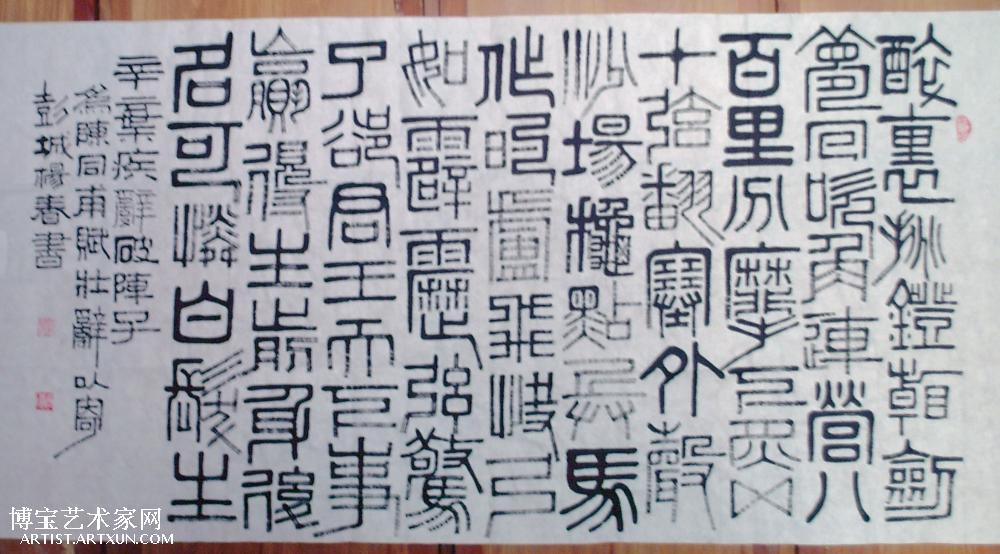 醉裏挑鐙看劍
夢回吹角連營八
百里分麾下炙五
十弦翻塞外聲
沙場穐點兵馬
作的盧飛快弓
如霹靂弦驚
了卻君王天下事
贏得生前身後
名可憐白髮生
辛棄疾辭破陣子
爲陳同甫賦壯辭以寄
彭城楊春書
博宝艺术家网
ARTIST.ARTXUN.COM